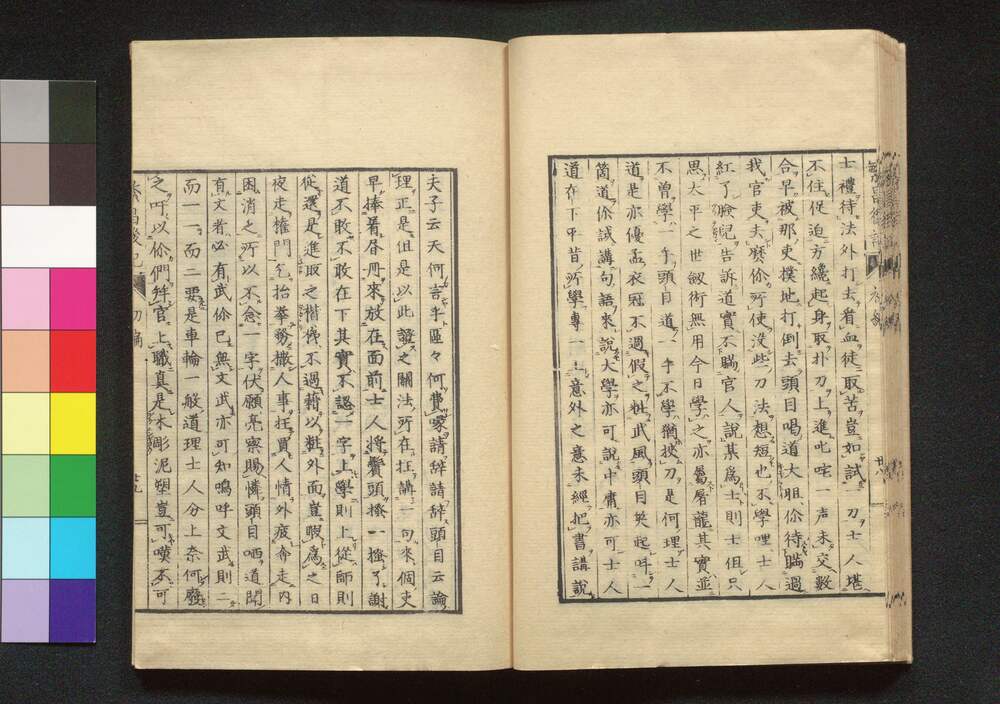 士禮待法外打去看血徒取苦豈如試一刀士人堪
不住促迫方纔起身取扑刀上進叱咤一声未交數
合早被那吏撲地打倒去頭目喝道大胆你待瞞過
我官吏夫麼你所使没些刀法想短也不學哩士人
紅了臉兒告訴道實不瞞官人說某為士則士但只
思太平之世劔術無用今日學之亦屬屠龍其實並
不曾學一乍頭目道一乍不學猶挾刀是何理士人
道是亦優孟衣冠不過假之粧武風頭目笑起吁一
箇道你試講句語來說大學亦可說中庸亦可士人
道在下平昔所學專一上意外之意未經把書講說
夫子云天何言乎區々何費喙請辞請辞頭目云論
理正是但是以此證之關法所在抂講一句來個吏
早捧着昼冊來放在面前士人將鬢頭搔一搔了謝
道不敢不敢在下其實不認一字上學則上從師則
從還是進取之楷梯不過藉以粧外面豈暇為之日
夜走權門乞抬擧務撒人事抂買人情外疲奔走内
困消之所以不念一字伏願亮察賜憐頭目哂道聞
有文者必有武你已無文武亦可知嗚呼文武則二
而一一而二要是車輪一般道理士人分上奈何廢
之吁以你們拜官上職真是木彫泥塑豈可嘆不可